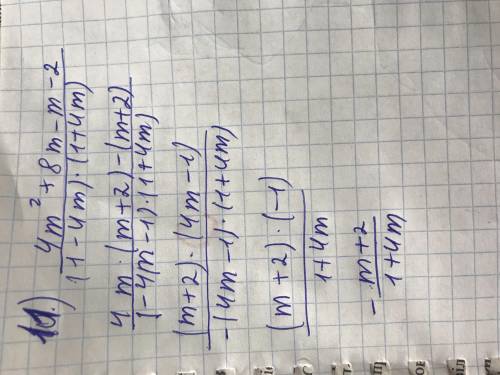 11) (4m² + 8m - m - 2) / ((1 - 4m) · (1 + 4m))
(4m · (m + 2) - (m + 2)) / ((- 4m - 1) · (1 + 4m))
((m + 2) · (4m - 1)) / (- (4m - 1) · (1 + 4m))
((m + 2) · (-1)) / (1 + 4m)
- (m + 2) / (1 + 4m)